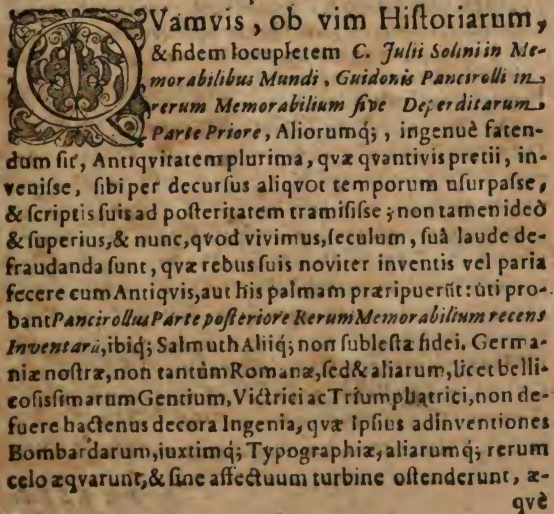 QVamvis, ob vim Hiſtoriarum,
& fidem locupletem C. Julii Solini in Me-
morabilibus Mundi, Guidonis Pancirolli in
rerum Memorabilium ſive Deperditarum
Parte Priore, Aliorumq́;, ingenuè faten-
dum ſit, Antiqvitatem plurima, qvæ qvantivis pretii, in-
veniſſe, ſibi per decurſus aliqvot temporum uſurpaſſe,
& ſcriptis ſuis ad poſteritatem tramiſiſſe; non tamen ideò
& ſuperius, & nunc, qvod vivimus, ſeculum, ſuâ laude de-
fraudanda ſunt, qvæ rebus ſuis noviter inventis vel paria
fecere cum Antiqvis, aut his palmam præripuerũt: ùti pro-
bant Pancirollus Parte poſteriore Rerum Memorabilium recens
Inventarũ, ibiq́; Salmuth Aliiq́; non ſubleſtæ fidei. Germa-
niæ noſtræ, non tantùm Romanæ, ſed & aliarum, licet belli-
coſiſſimarum Gentium, Victrici ac Triumphatrici, non de-
fuere hactenus decora Ingenia, qvæ Ipſius adinventiones
Bombardarum, iuxtimq́; Typographiæ, aliarumq́; rerum
celo æqvarunt, & ſine affectuum turbine oſtenderunt, æ-
qvè